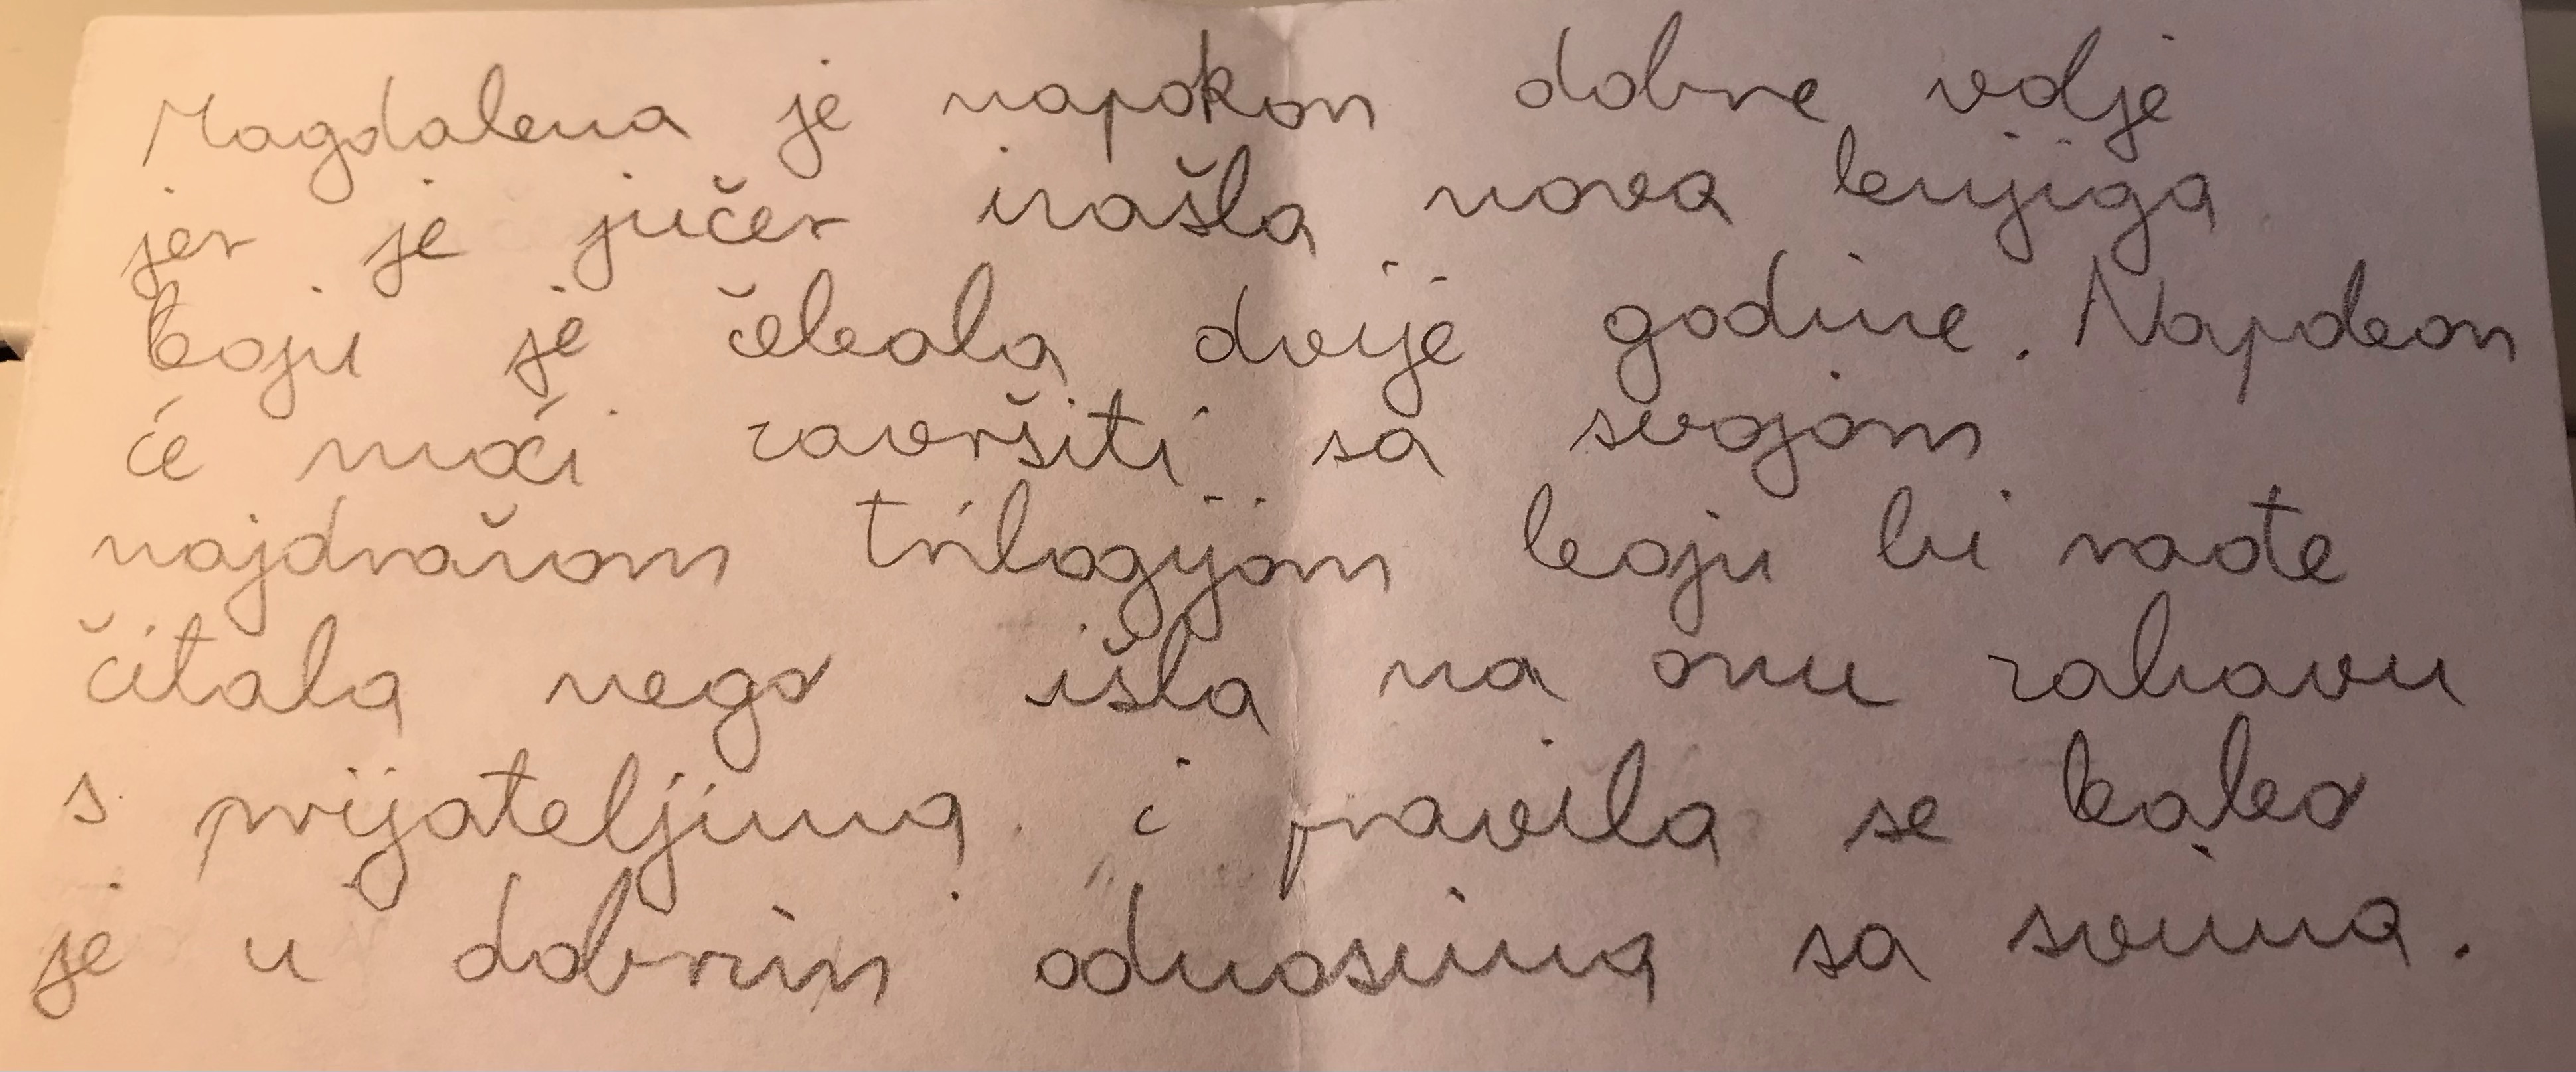 Magdalena je napokon dobre volje
jer je jučer izašla nova knjiga
koju je čekala dvije godine. Napoleon
će moći završiti sa svojom
najdražom trilogijom koju bi rađe
čitala nego išla na onu zabavu
s prijateljima i pravila se kako
je u dobrim odnosima sa svima.